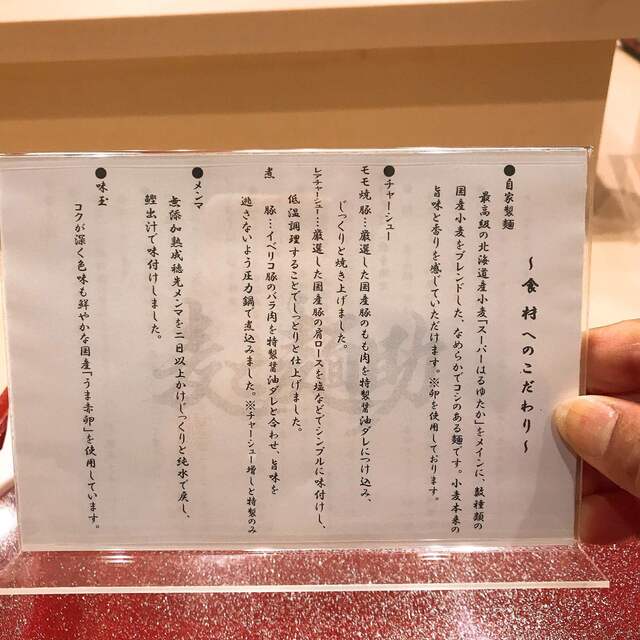 ～食材へのこだわり～
●自家製麺
最高級の北海道産小麦「スーパーはるゆたか」をメインに、数種類の
国産小麦をブレンドした、なめらかでコシのある麺です。小麦本来の
旨味と香りを感じていただけます。※卵を使用しております。
●チャーシュー
モモ焼豚…厳選した国産豚のもも肉を特製醤油ダレにつけ込み、
じっくりと焼き上げました。
レアチャーシュー…厳選した国産豚の肩ロースを塩などでシンプルに味付けし、
低温調理することでしっとりと仕上げました。
煮豚…イベリコ豚のバラ肉を特製醤油ダレと合わせ、旨味を
逃さないよう圧力鍋で煮込みました。※チャーシュー増しと特製のみ
●メンマ
無添加熟成穂先メンマを二日以上かけじっくりと純水で戻し、
鰹出汁で味付けしました。
●味玉
コクが深く色味も鮮やかな国産「うま赤卵」を使用しています。